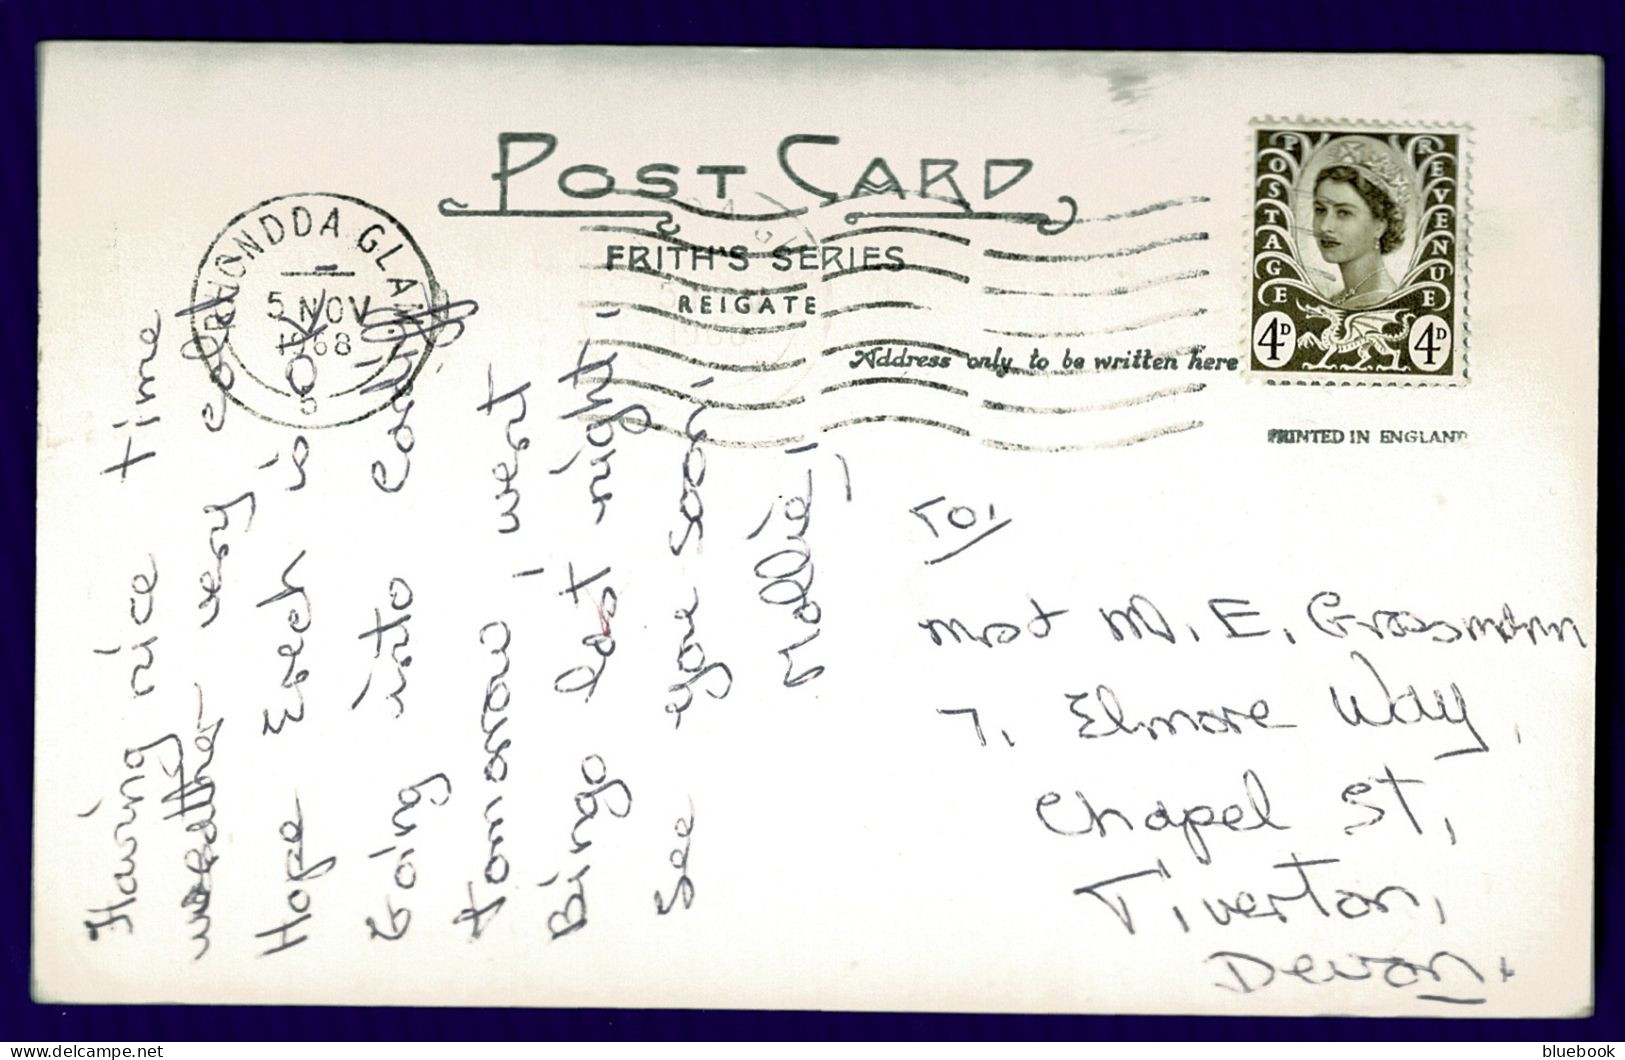 POST CARD
FRITH'S SERIES
REIGATE
Address only to be written here
PRINTED IN ENGLAND
POSTAGE REVENUE
4D 4D
RHONDDA GLAM
5 NOV
1968
Having nice time
weather very cold
Hope Enech is ok
Going into Cardiff
tomorrow I went
Bingo last night
See you soon
Mollie
To,
M. E. Grossmann
7, Elmore Way,
Chapel St,
Tiverton,
Devon.
bluebook
delcampe.net